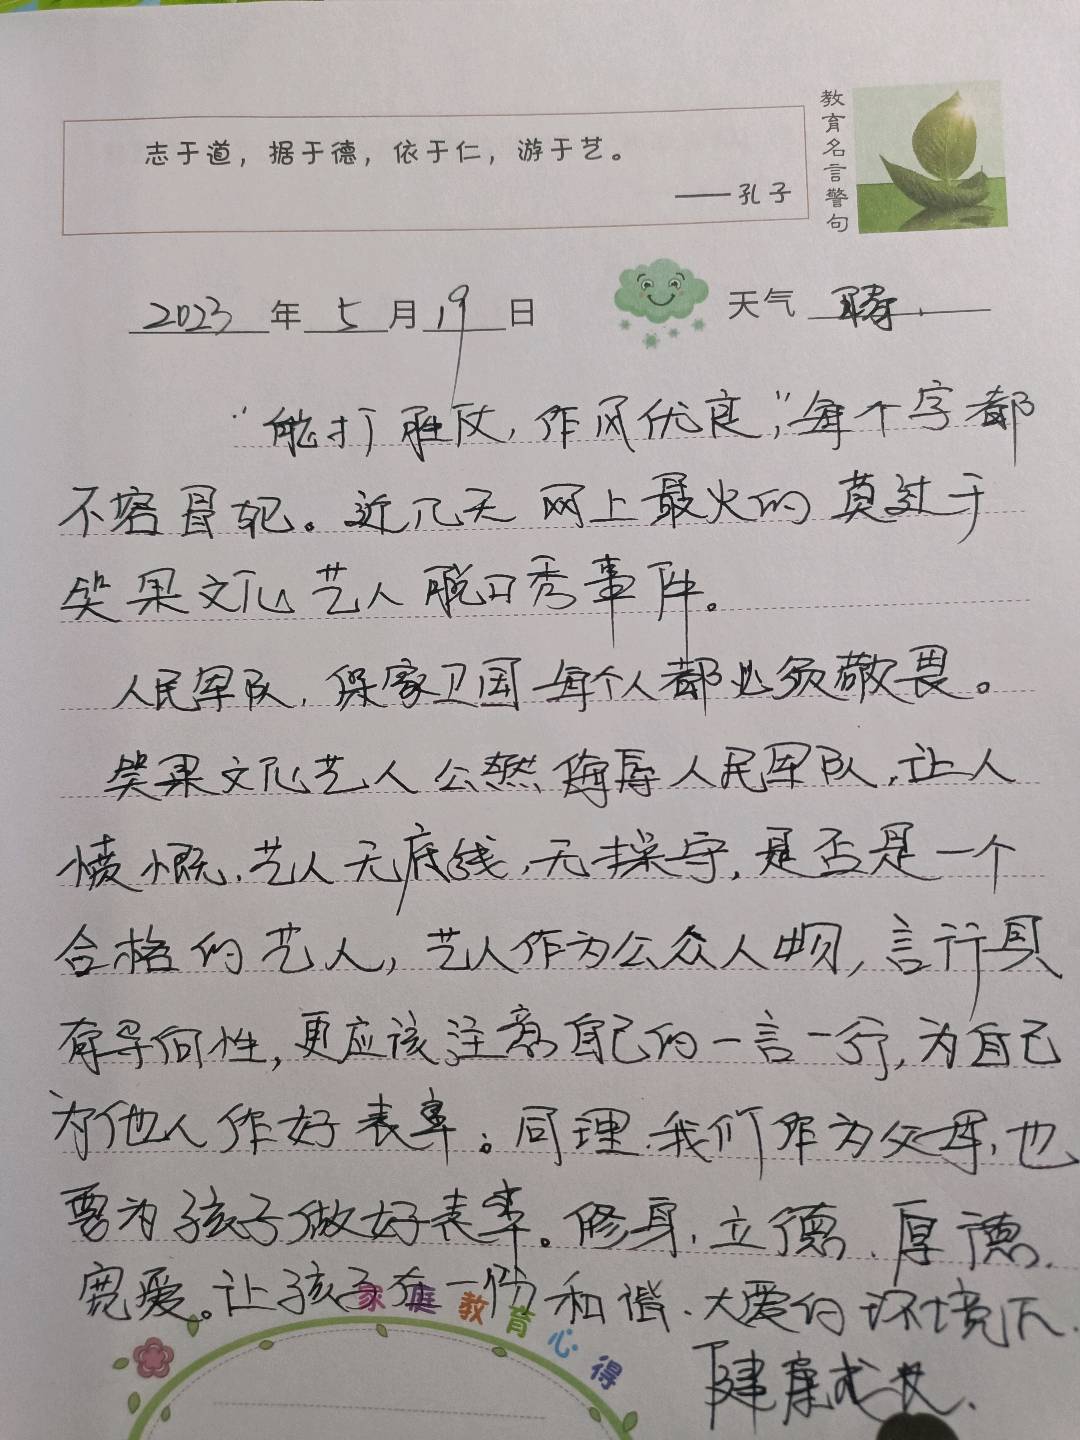 志于道，据于德，依于仁，游于艺。
——孔子
教育名言警句
2023年5月19日 天气 晴.
“能打胜仗，作风优良，”每个字都
不容冒犯。近几天网上最火的莫过于
笑果文化艺人脱口秀事件。
人民军队，保家卫国每个人都必须敬畏。
笑果文化艺人公然侮辱人民军队，让人
愤慨，艺人无底线，无操守，是否是一个
合格的艺人，艺人作为公众人物，言行具
有导向性，更应该注意自己的一言一行，为自己
为他人作好表率。同理，我们作为父母，也
要为孩子做好表率。修身，立德、厚德、
宽爱。让孩子在一份和谐、大爱的环境下，
健康成长.
家庭教育心得